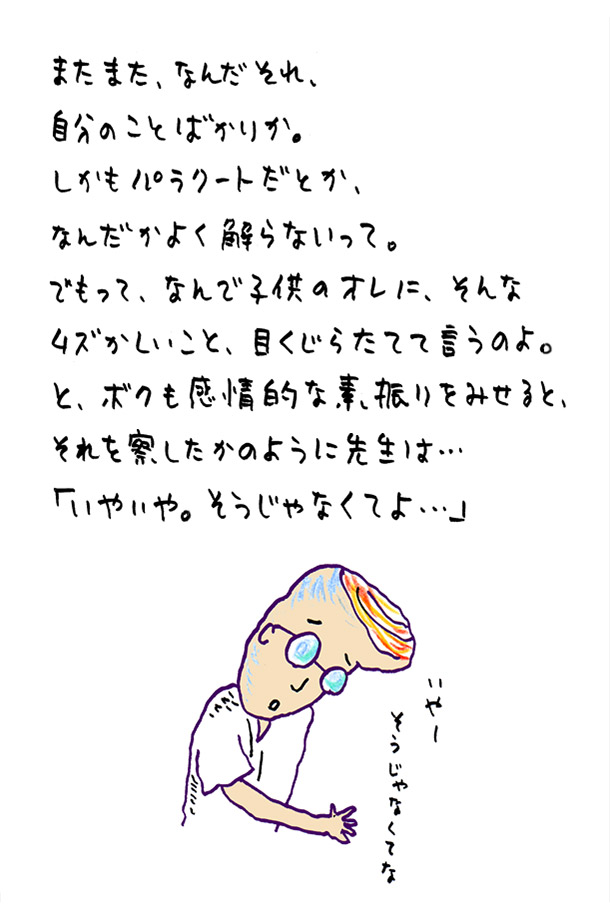 またまた、なんだそれ、
自分のことばかりか。
しかもパラクートだとか、
なんだかよく解らないって。
でもって、なんで子供のオレに、そんな
ムズかしいこと、目くじらたてて言うのよ。
と、ボクも感情的な素振りをみせると、
それを察したかのように先生は…
「いやいや。そうじゃなくてよ…」
いやー
そうじゃなくてな